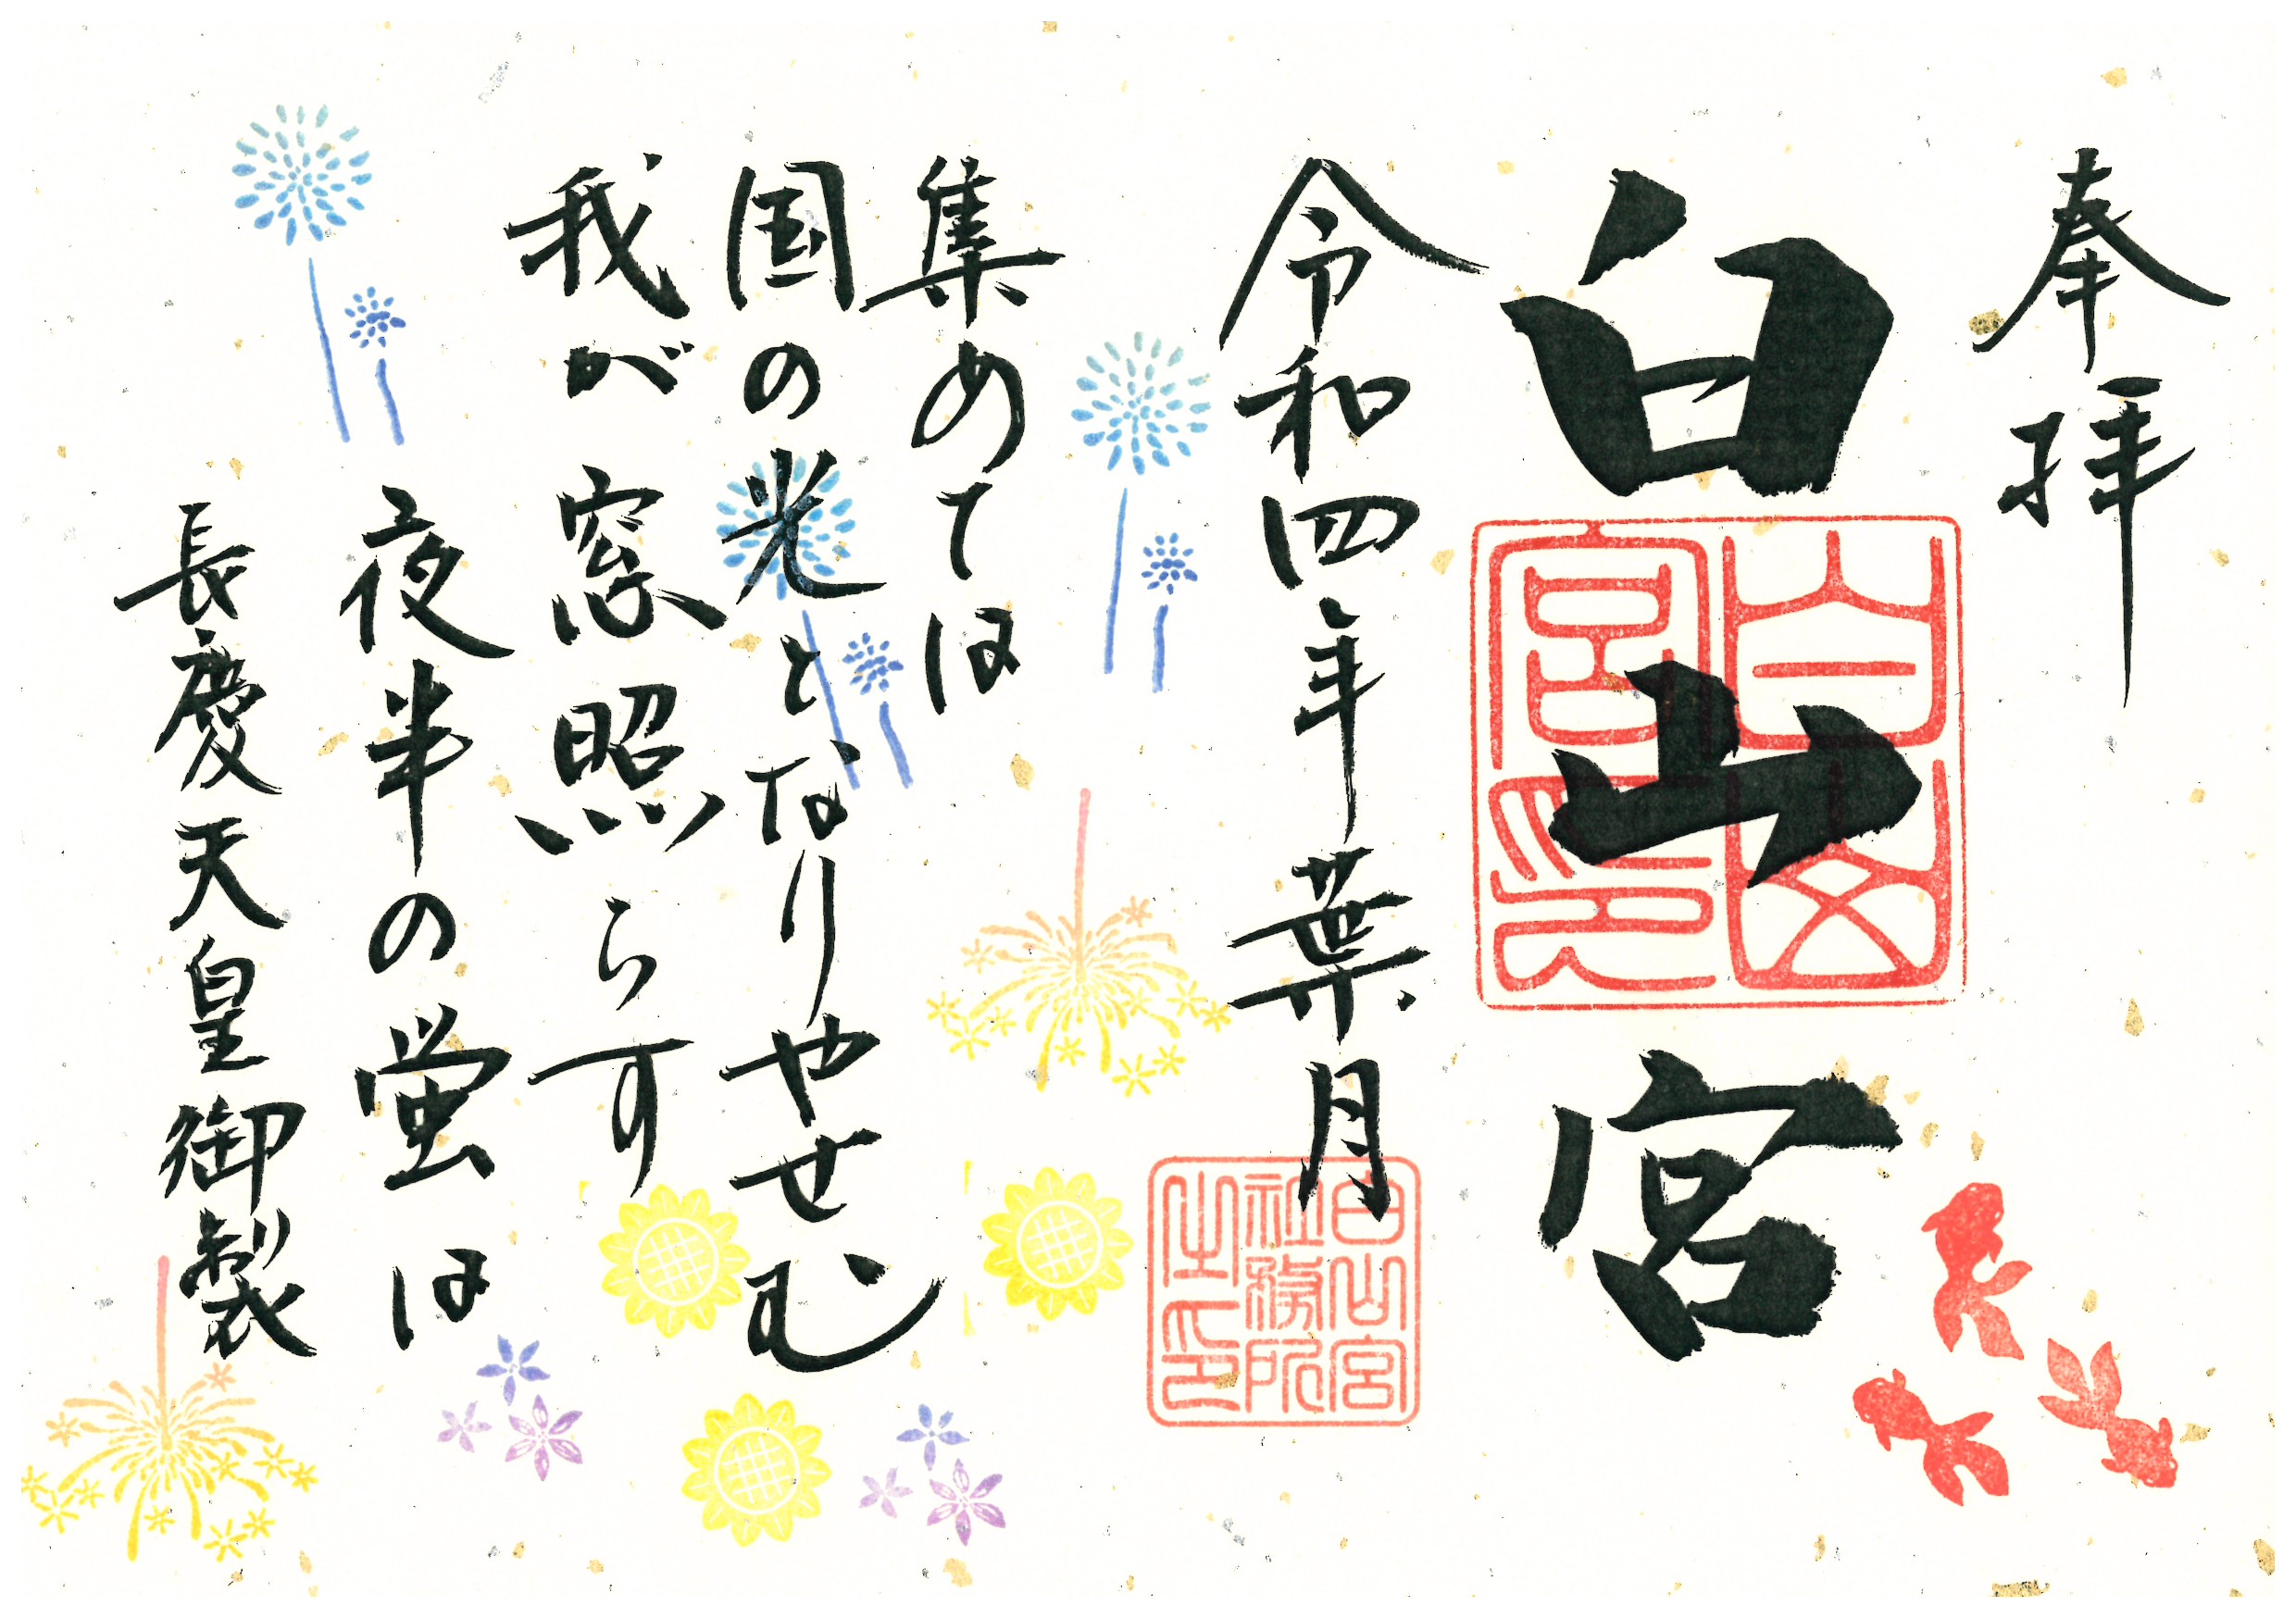 奉拝
白山宮
白山宮印
令和四年葉月
白山宮社務所之印
集めては
国の光となりやせむ
我が窓照らす
夜半の蛍は
長慶天皇御製